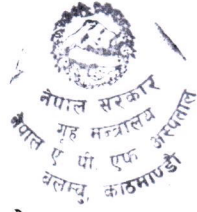 नेपाल सरकार
गृह मन्त्रालय
नेपाल ए पी. एफ अस्पताल
बलम्बु, काठमाण्डौ